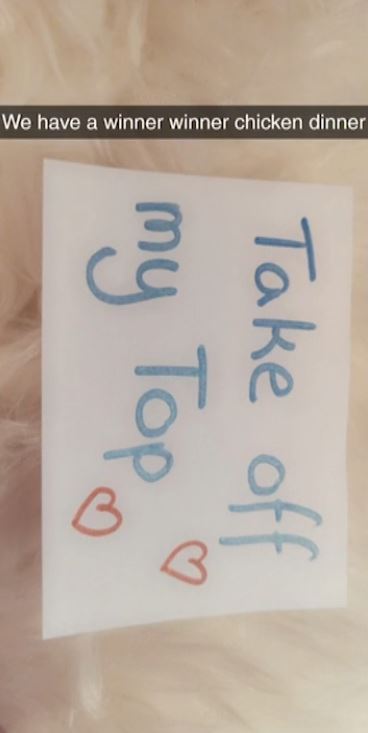 We have a winner winner chicken dinner
Take off
my Top